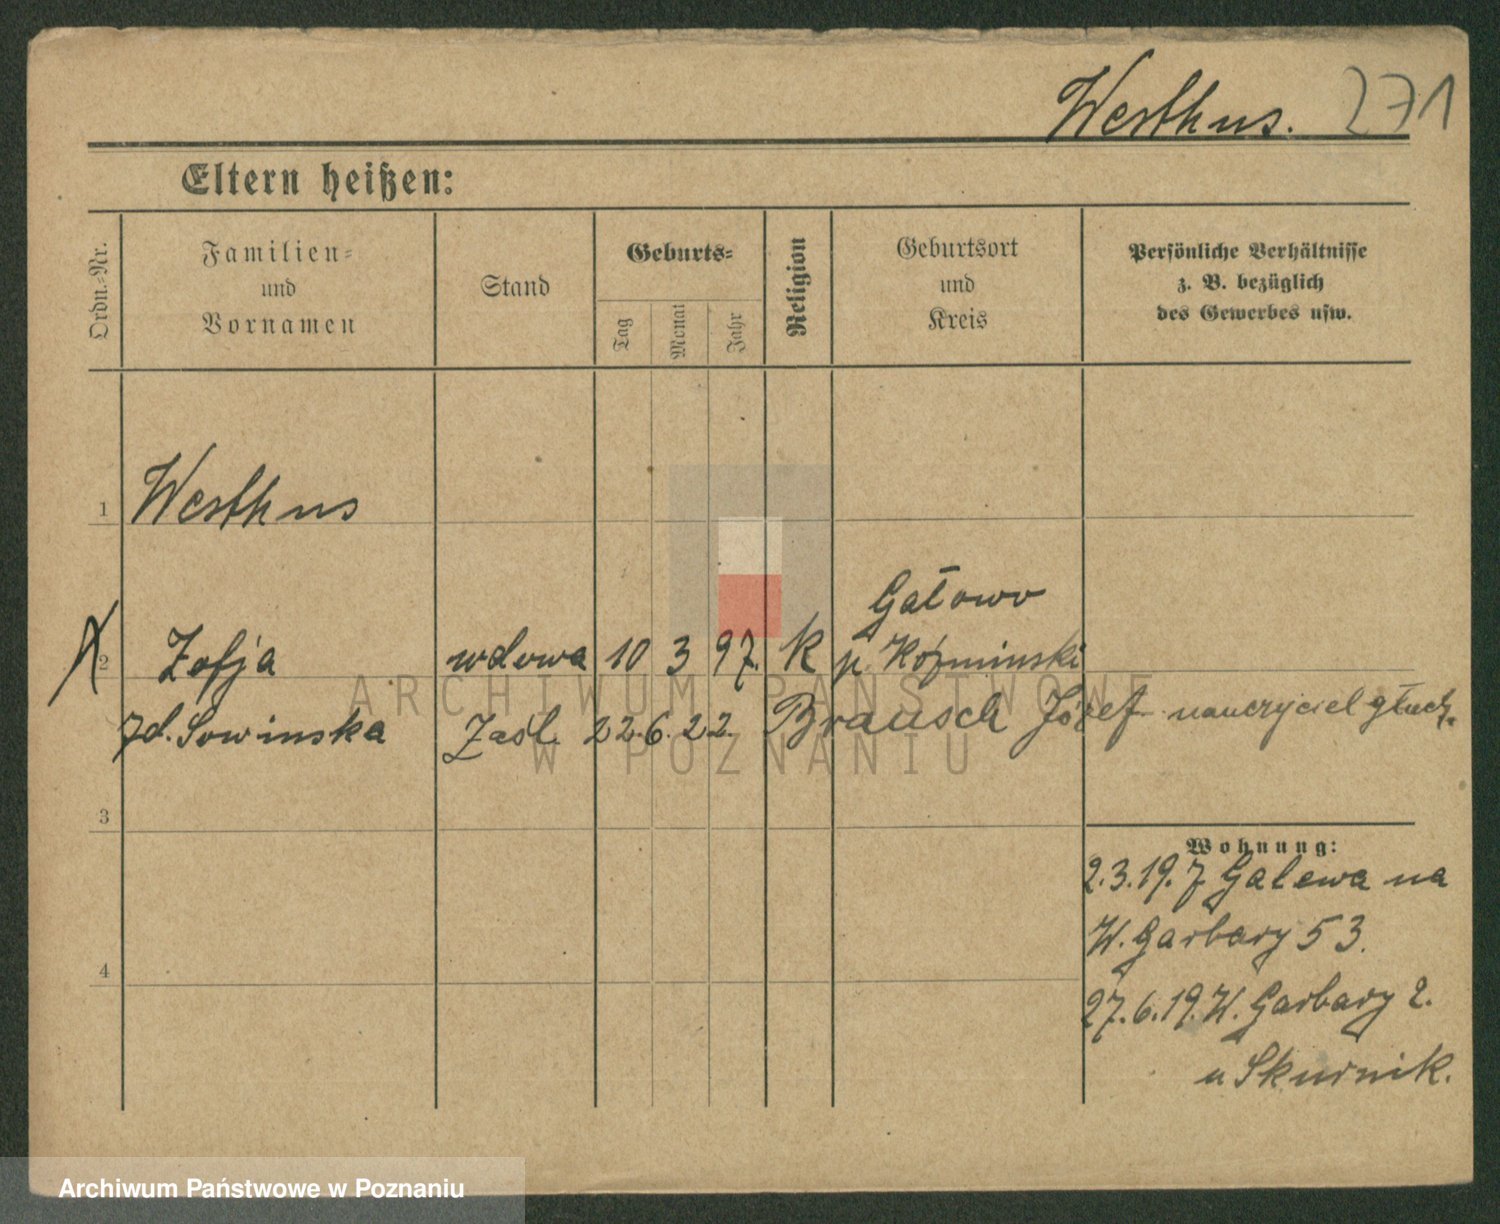 Westhus. 271
Eltern heißen:
Ordn.=Nr.
Familien=
und
Vornamen
Stand
Geburts=
Tag
Monat
Jahr
Religion
Geburtsort
und
Kreis
Persönliche Verhältnisse
z. B. bezüglich
des Gewerbes usw.
1 Westhus
Gałowo
2 Zofja wdowa 10 3 97. k p. Kozminski
zd. Sowinska Zaśl. 22.6.22. Brausch Józef nauczyciel głuch.
3
Wohnung:
2.3.19. z Galewa na
W. Garbary 53.
4
27.6.19. W. Garbary 2.
u Skurnik.
ARCHIWUM PAŃSTWOWE
W POZNANIU
Archiwum Państwowe w Poznaniu